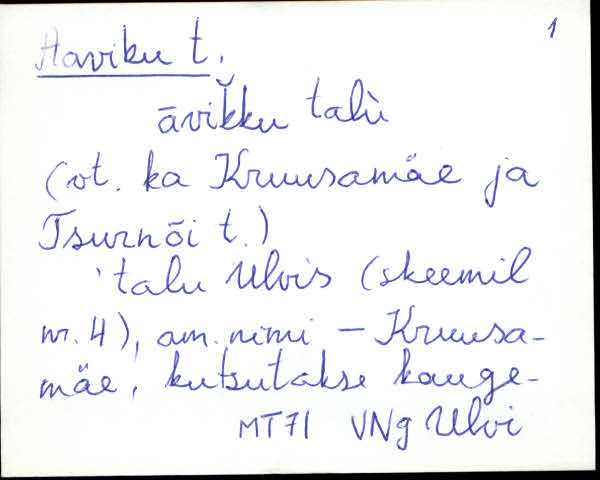 1
Haviku t.
āvik̆ku talù
(vt. ka Kruusamäe ja
Tsurnõi t.)
'talu Ulvis (skeemil
nr. 4), am. nimi – Kruusa-
mäe, kutsutakse kauge-
MT71 VNg Ulvi